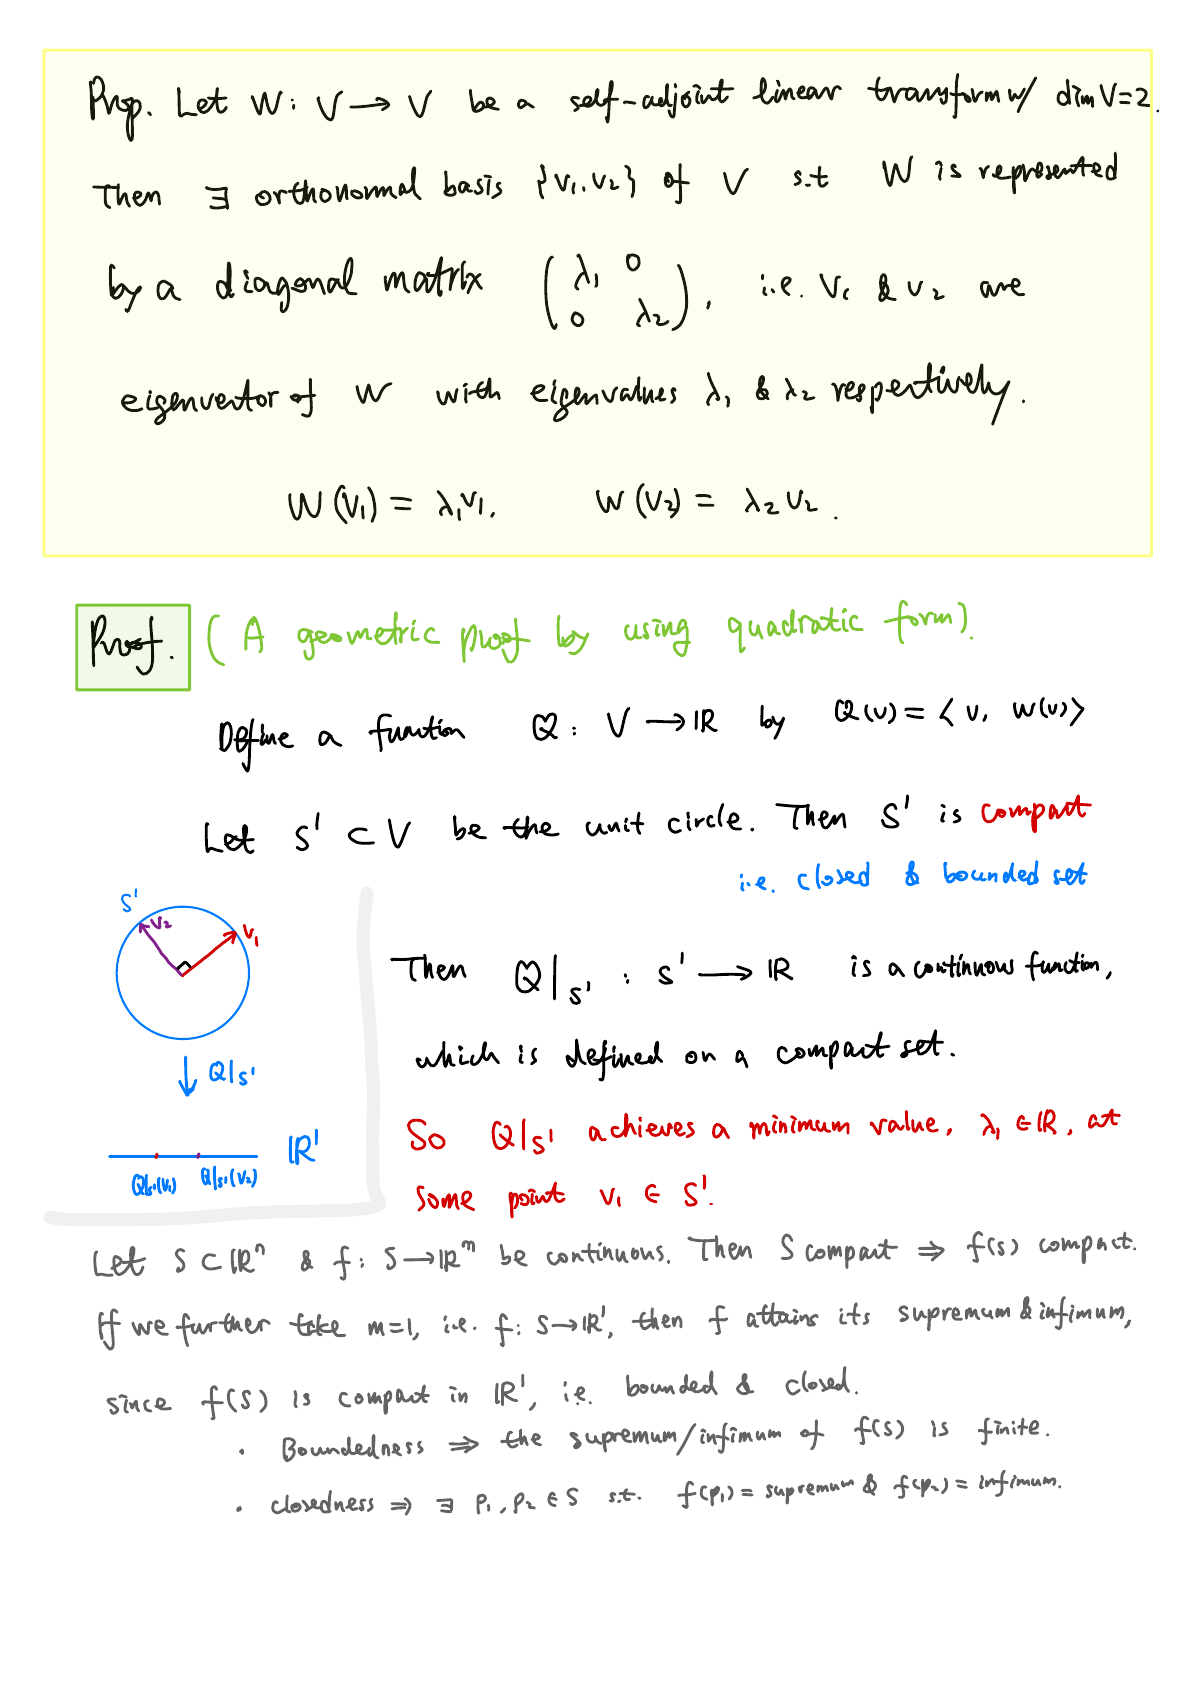 Prop. Let W: V → V be a self-adjoint linear transform w/ dim V=2.
Then ∃ orthonormal basis {v₁, v₂} of V s.t W is represented
by a diagonal matrix ( λ₁ 0
0 λ₂ ), i.e. v₁ & v₂ are
eigenvector of W with eigenvalues λ₁ & λ₂ respectively.
W(v₁) = λ₁v₁. W(v₂) = λ₂v₂.
Proof. ( A geometric proof by using quadratic form ).
Define a function Q: V → ℝ by Q(v) = < v, W(v) >
Let S' ⊂ V be the unit circle. Then S' is compact
i.e. closed & bounded set
S'
v₂
v₁
Then Q|s' : S' → ℝ is a continuous function,
which is defined on a compact set.
Q|s'
So Q|s' achieves a minimum value, λ₁ ∈ ℝ, at
ℝ'
Q|s'(v₁) Q|s'(v₂)
some point v₁ ∈ S'.
Let S ⊂ ℝⁿ & f: S → ℝᵐ be continuous. Then S compact ⇒ f(s) compact.
If we further take m=1, i.e. f: S → ℝ', then f attains its supremum & infimum,
since f(S) is compact in ℝ', i.e. bounded & closed.
• Boundedness ⇒ the supremum/infimum of f(S) is finite.
• closedness ⇒ ∃ p₁, p₂ ∈ S s.t. f(p₁) = supremum & f(p₂) = infimum.